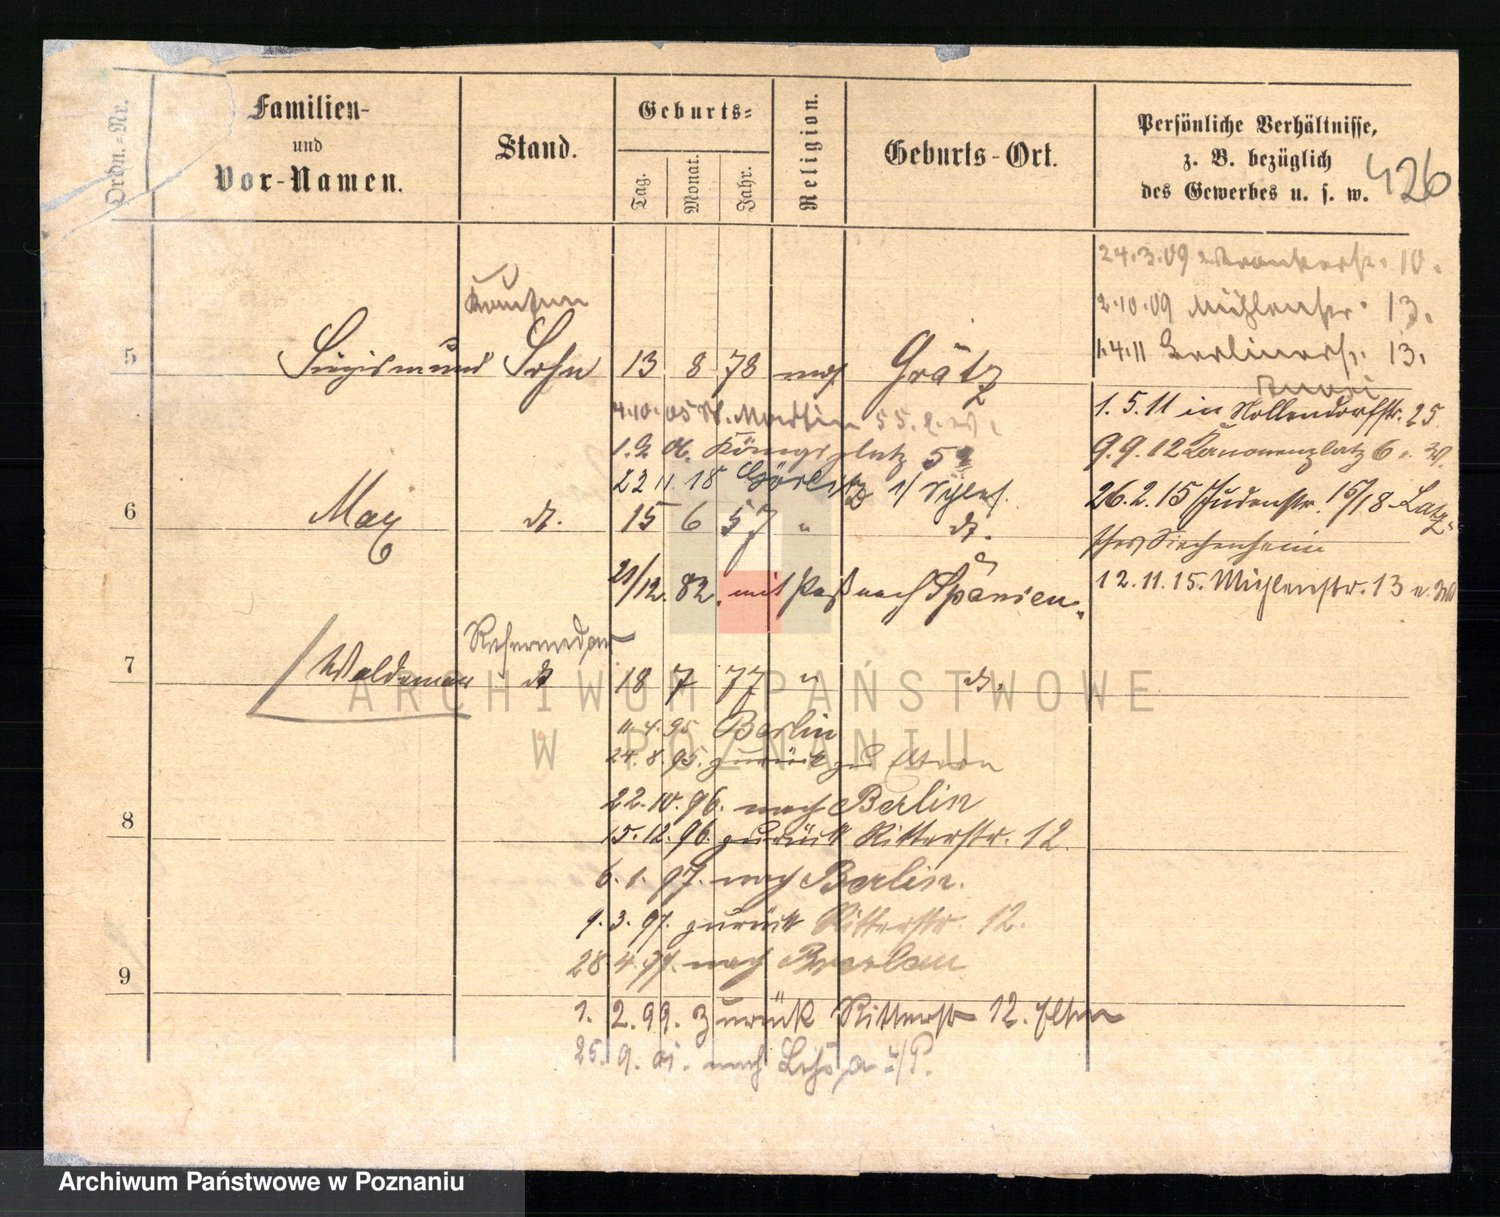 Ordn.-Nr.
Familien-
und
Vor-Namen.
Stand.
Geburts-
Tag.
Monat.
Jahr.
Religion.
Geburts-Ort.
Persönliche Verhältnisse,
z. B. bezüglich
des Gewerbes u. s. w.
426
24.3.09 Wronkerstr. 10.
2.10.09 Mühlenstr. 13.
1.4.11 Berlinerstr. 13.
5 Sigismund Sohn 13 8 78 mos. Grätz
1.5.11 in Nollendorfstr. 25
4.10.05 St. Martin 55.
Königsplatz 5
9.9.12 Kanonenplatz 6
22 11. 18 Görlitz i/ Schles.
26.2.15 Judenstr. 15/18 Latz-
sches Siechenheim
6 Max dt. 15 6 57 " dt.
12.11.15. Mühlenstr. 13
21/12. 82. mit Paß nach Spanien.
Referendar
7 Waldemar dt 18 7 77 " dt.
11.4.95 Berlin
24.8.95. zurück zu Eltern
22.10.96. nach Berlin
8
15.12.96. zurück Ritterstr. 12.
6.1.97. nach Berlin.
1.3.97. zurück Ritterstr. 12.
28.4.97. nach Breslau
9
1. 2.99. zurück Ritterstr 12. Eltern
25. 9. nach
ARCHIWUM PAŃSTWOWE
W POZNANIU
Archiwum Państwowe w Poznaniu